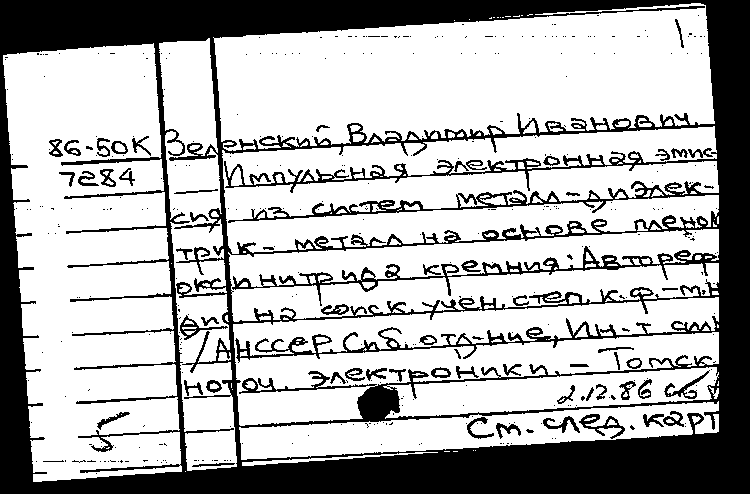 1
86-50К Зеленский, Владимир Иванович.
7284 Импульсная электронная эмис-
сия из систем металл-диэлек-
трик-металл на основе пленок
оксинитрида кремния: Автореф.
дис на соиск. учен. степ. к.ф.-м.н
/АН СССР. Сиб. отд-ние, Ин-т силь
ноточ. электроники. - Томск
2.12.86
5 См. след. карт